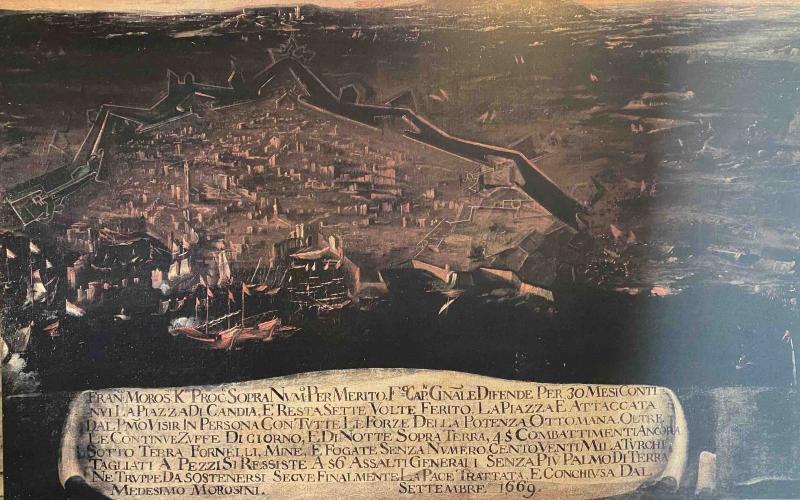 FRAN MOROS. K PROC. SOPRA NUM. PER MERITO, CAP. GNALE DIFENDE PER 30 MESI CONTI
NVI LA PIAZZA DI CANDIA, E RESTA SETTE VOLTE FERITO. LA PIAZZA E ATTACCATA
DAL PMO VISIR IN PERSONA CON TVTTE LE FORZE DELLA POTENZA OTTOMANA. OLTRE
LE CONTINVE ZVFFE DI GIORNO, E DI NOTTE SOPRA TERRA, 45 COMBATTIMENTI ANCORA
SOTTO TERRA FORNELLI, MINE, E FOGATE SENZA NVMERO. CENTO VENTI MILA TVRCHI
TAGLIATI A PEZZI SI RESSISTE A 56 ASSALTI GENERALI SENZA PIV PALMO DI TERRA
NE TRVPPE DA SOSTENERSI SEGVE FINALMENTE LA PACE TRATTATA, E CONCHIVSA DAL
MEDESIMO MOROSINI. SETTEMBRE 1669